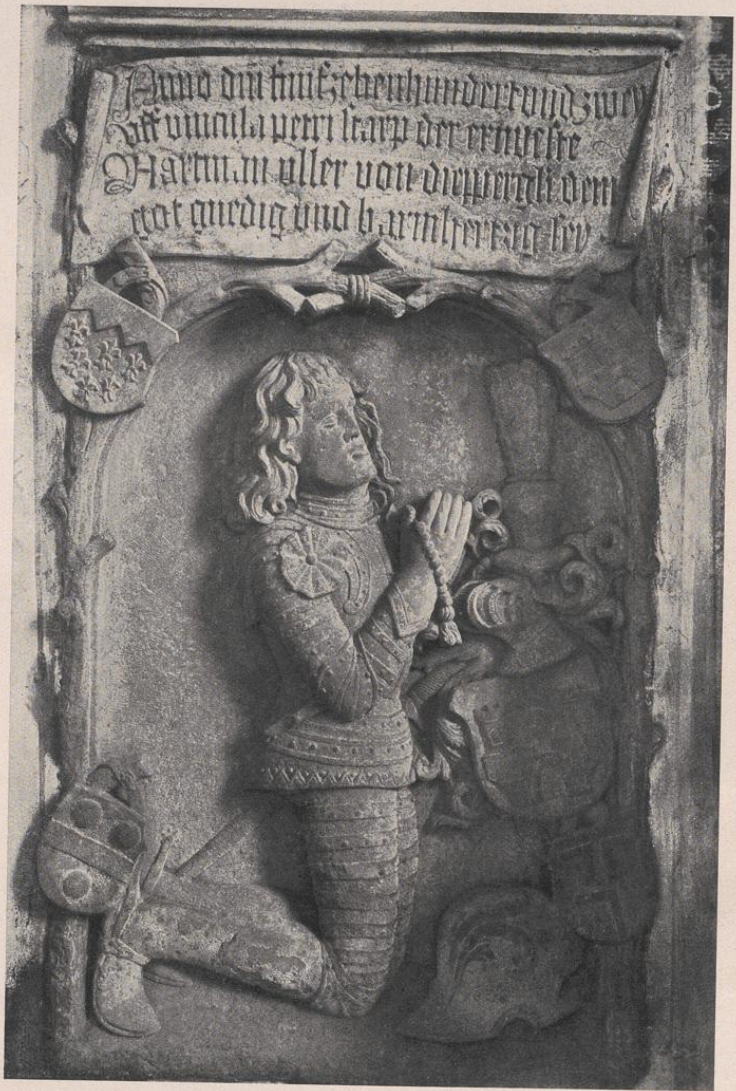 Anno dm̄ funfzehenhundert vnd zwey
vff vincula petri starp der ernveste
Hartman vller von diepperg dem
got gnedig vnd barmhertzig sey